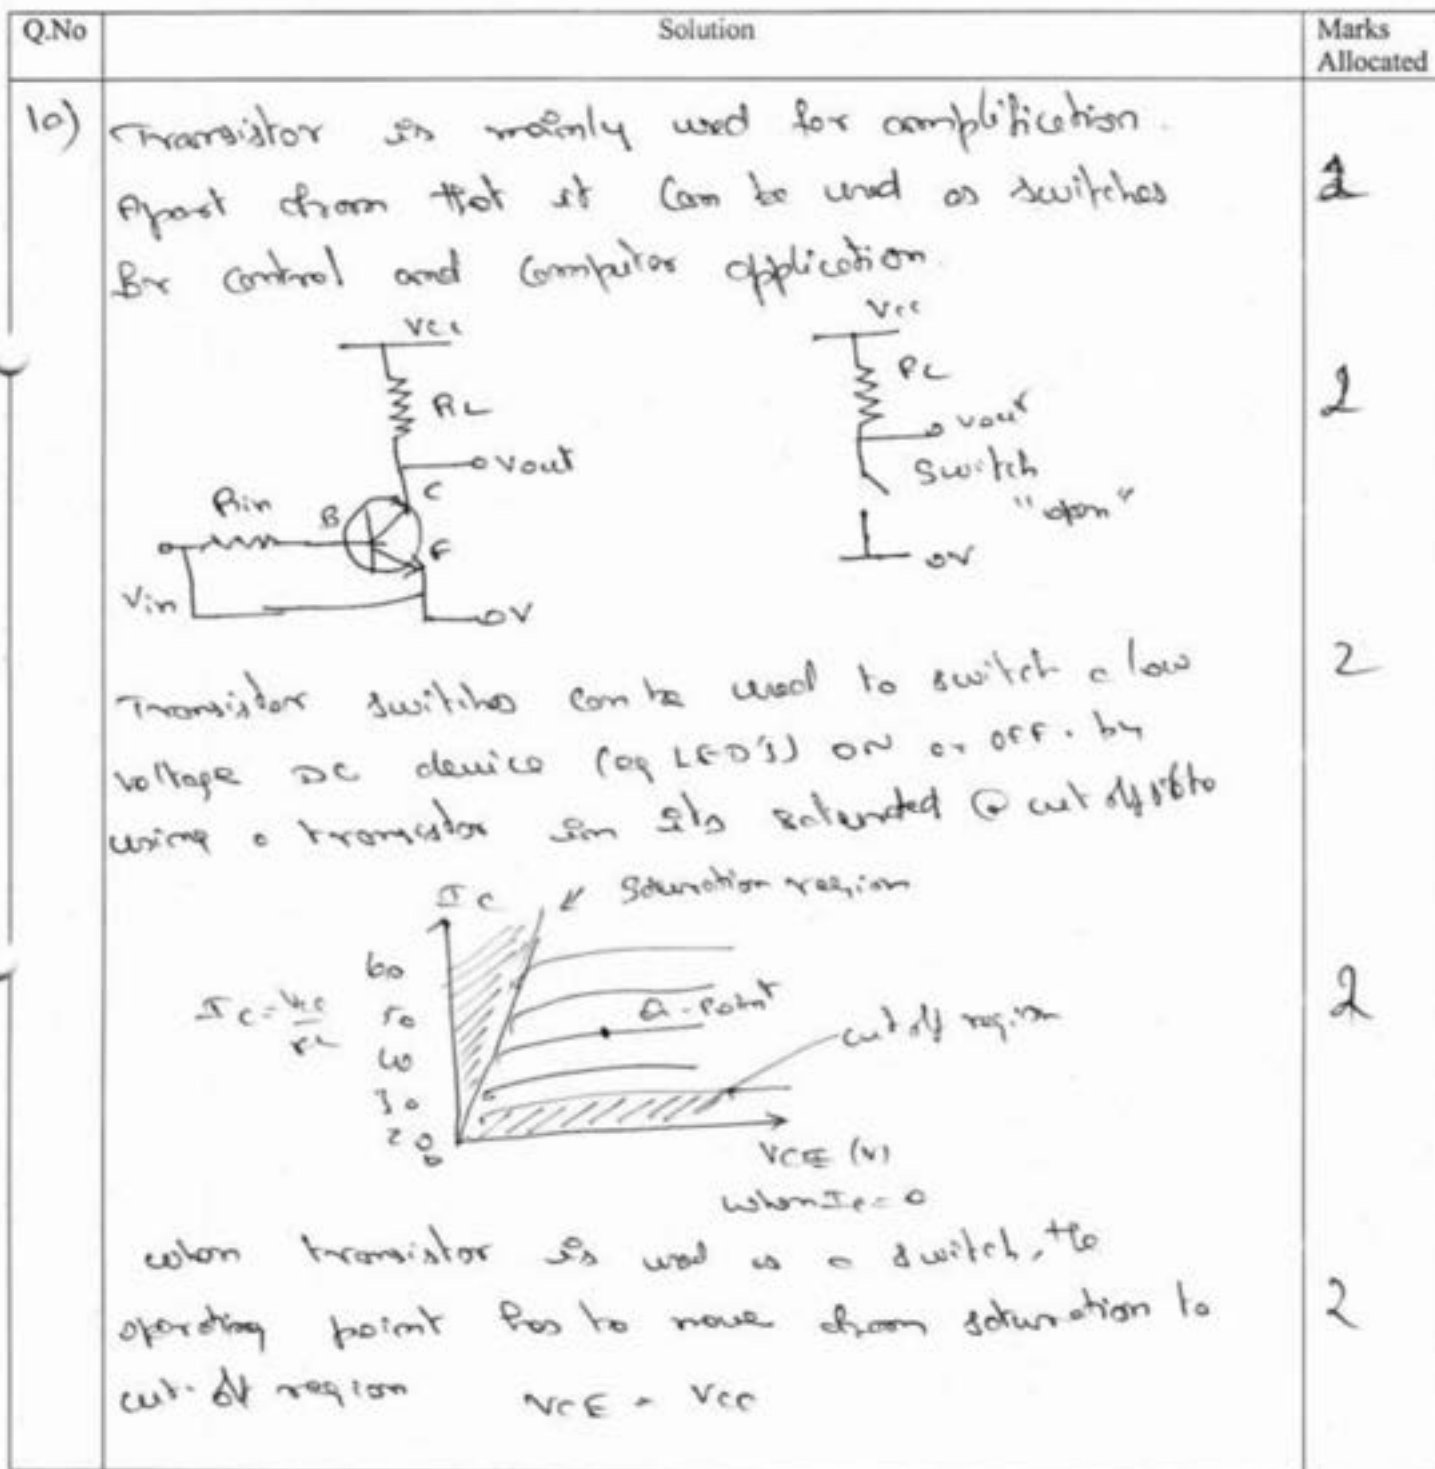 Q.No Solution Marks Allocated
1a) Transistor is mainly used for amplification.
Apart from that it can be used as switches 1
for control and computer application.
Vcc Vcc
RL RL 2
Vout Vout
Rin B C Switch
"open"
E
0V
Vin 0V
Transistor switches can be used to switch a low 2
voltage DC device (eg LED's) ON or OFF. by
using a transistor in its saturated @ cut off
Ic Saturation region
60
Ic = Vcc/RL 50 Q-Point cut off region 2
40
30
20
0
VCE (V)
when Ic = 0
when transistor is used as a switch, the
operating point has to move from saturation to 2
cut-off region VCE = Vcc